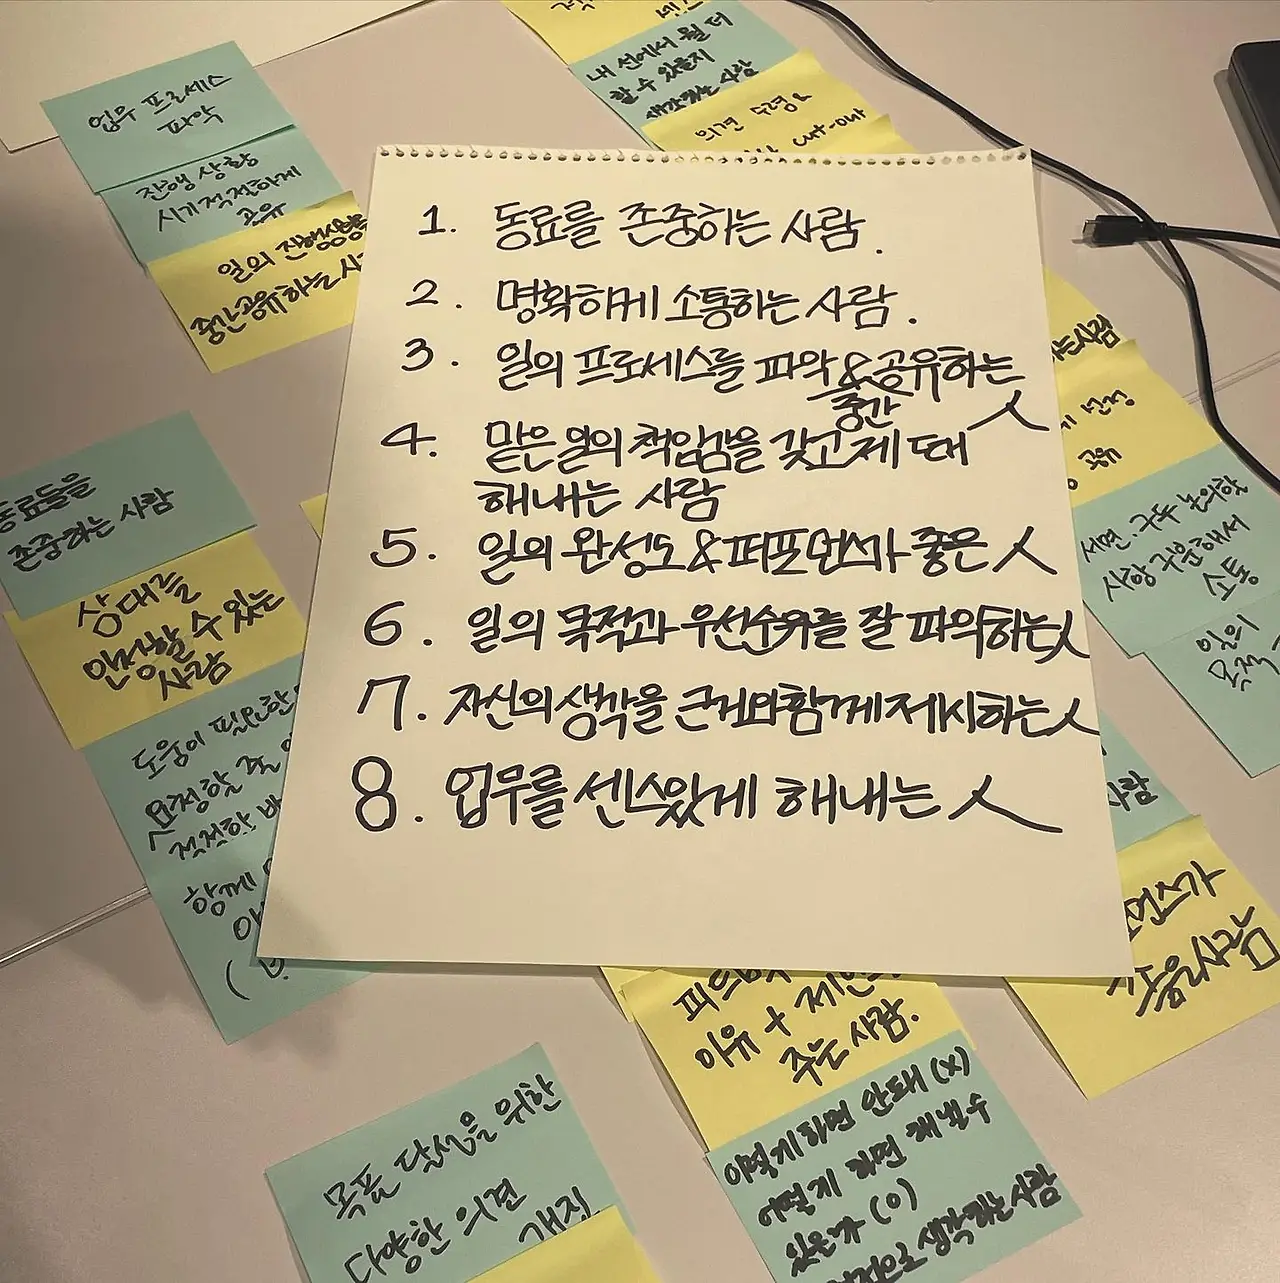 내 선에서 뭘 더
할 수 있을지
생각하는 사람
의견 수렴&
cut-out
업무 프로세스
파악
진행 상황
시기적절하게
공유
일의 진행상황을
중간공유하는 사
1. 동료를 존중하는 사람.
2. 명확하게 소통하는 사람.
3. 일의 프로세스를 파악&공유하는
중간 人
4. 맡은 일의 책임감을 갖고 제 때
해내는 사람
5. 일의 완성도&퍼포먼스가 좋은 人
6. 일의 목적과 우선순위를 잘 파악하는人
7. 자신의 생각을 근거와 함께 제시하는人
8. 업무를 센스있게 해내는 人
동료들을
존중하는 사람
상대를
인정할 수 있는
사람
도움이 필요한
요청할 줄
적절한
함께
는사람
공유
서면. 구두 논의한
사항 구분해서
소통
일의
목적
사람
먼스가
좋은사람
이유 + 제안
주는 사람.
이렇게하면 안돼 (x)
어떻게 하면 해낼 수
있는가 (o)
생각하는사람
목표 달성을 위한
다양한 의견
개진